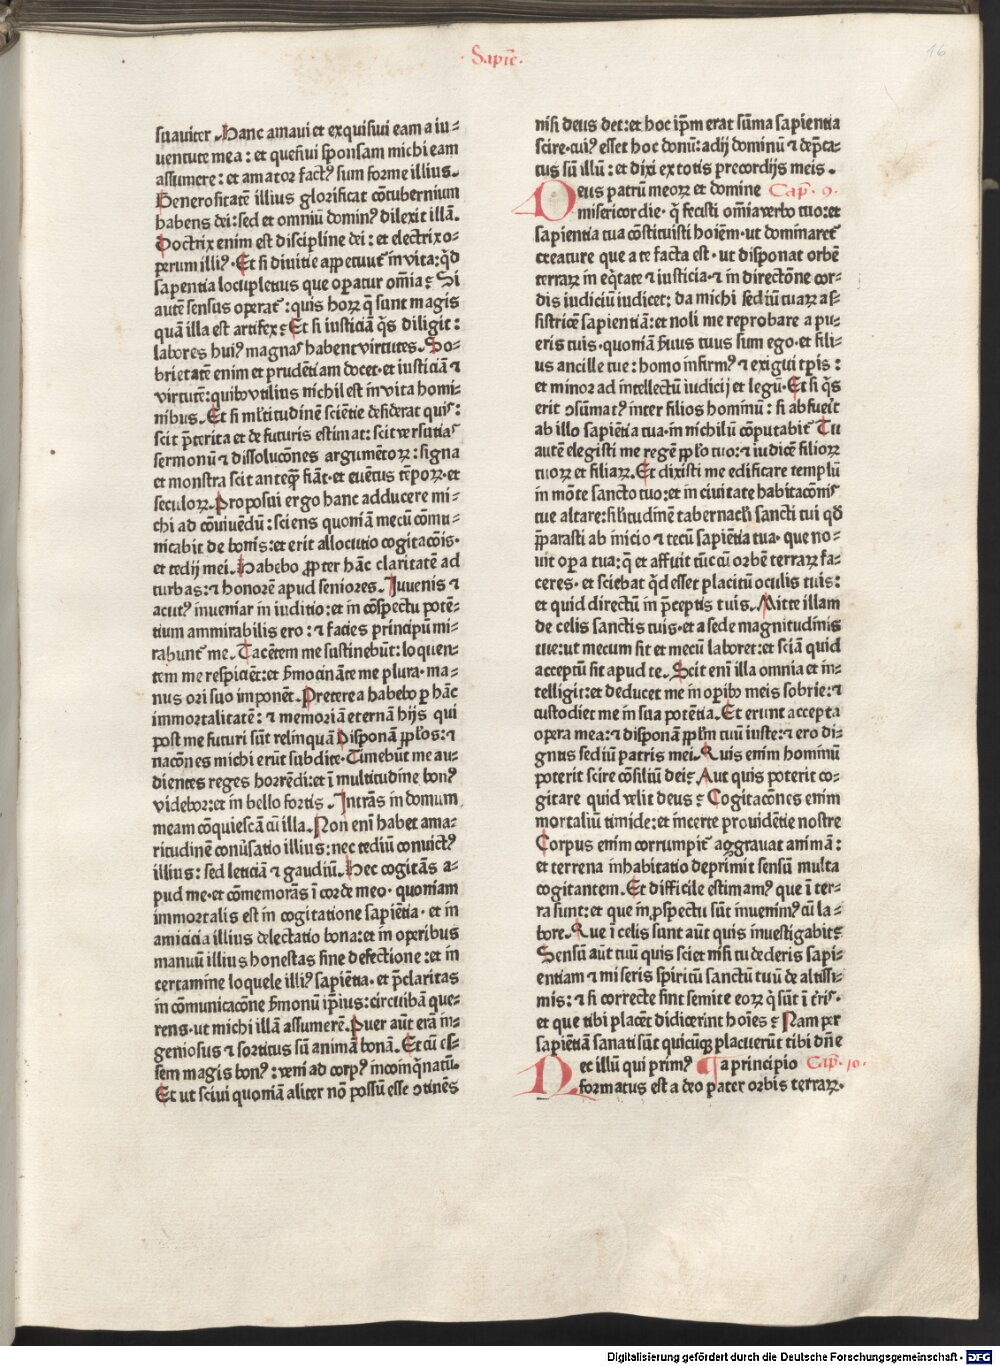 Sapiē.
16
suauiter. Hanc amaui et exquisiui eam a iu⸗
uentute mea : et quesiui sponsam michi eam
assumere : et amator factꝰ sum forme illius.
Generositatē illius glorificat cōtubernium
habens dei : sed et omniū dominꝰ dilexit illā.
Doctrix enim est discipline dei : et electrix o⸗
perum illiꝰ. Et si diuitie appetunt̄ in vita : qͥd
sapentia locupletius que operatur om̄ia ? Si
autē sensus operat̄ : quis horꝝ q̄ sunt magis
quā illa est artifex ? Et si iusticiā qͥs diligit :
labores huiꝰ magnas habent virtutes. So⸗
brietatē enim et prudētiam docet. et iusticiā ⁊
virtutē : quibꝰ vtilius nichil est in vita homi⸗
nibus. Et si mlʼtitudinē sciētie desiderat quis :
scit p̄terita et de futuris estimat : scit versutias
sermonū ⁊ dissolucōnes argumētorꝝ : signa
et monstra scit anteqͣꝫ fiāt. et euētus tēporꝝ. et
seculorꝝ. Proposui ergo hanc adducere mi⸗
chi ad cōuiuēdū : sciens quoniā mecū cōmu⸗
nicabit de bonis : et erit allocutio cogitacōis.
et tedij mei. Habebo ꝓpter hāc claritatē ad
turbas : ⁊ honorē apud seniores. Iuuenis ⁊
acutꝰ inueniar in iuditio : et in cōspectu potē⸗
tium ammirabilis ero : ⁊ facies principū mi⸗
rabunt̄ me. Tacētem me sustinebūt : loquen⸗
tem me respiciēt : et sermocināte me plura. ma⸗
nus ori suo imponēt. Preterea habebo ꝑ hāc
immortalitatē : ⁊ memoriā eternā hijs qui
post me futuri sūt relinquā Disponā ꝓplos : ⁊
nacōnes michi erūt subdite. Timebūt me au⸗
dientes reges horrēdi : et ī multitudine bonꝰ
videbor : et in bello fortis. Intrās in domum
meam cōquiescā cū illa. Non eni᷑ habet ama⸗
ritudinē conuersatio illius : nec tediū conuictꝰ
illius : sed leticiā ⁊ gaudiū. Hec cogitās a⸗
pud me. et cōmemorās ī corde meo. quoniam
immortalis est in cogitatione sapiētia. et in
amicicia illius delectatio bona : et in operibus
manuū illius honestas sine defectione : et in
certamine loquele illiꝰ sapiētia. et p̄claritas
in cōmunicacōne sermonū ipsius : circuibam que⸗
rens. ut michi illā assumerē. Puer aūt erā in⸗
geniosus ⁊ sortitus sū animā bonā. Et cū es⸗
sem magis bonꝰ : veni ad corpꝰ incoinq̇natū.
Et ut sciui quoniā aliter nō possū esse ↄtinēs
nisi deus det : et hoc ip̄m erat sūma sapientia
scire. cuiꝰ esset hoc donū : adij dominū ⁊ dep̄ca⸗
tus sū illū : et dixi ex totis precordijs meis.
Deus patrū meorꝝ et domine Cap̄. 9.
misericordie. q̄ fecisti om̄ia verbo tuo : et
sapientia tua cōstituisti hoīem. ut dominaret̄
creature que a te facta est. ut disponat orbē
terrarꝝ in eq̇tate ⁊ iusticia. ⁊ in directōne cor⸗
dis iudiciū iudicet : da michi sediū tuarꝝ as⸗
sistricē sapientiā : et noli me reprobare a pu⸗
eris tuis. quoniā seruus tuus sum ego. et fili⸗
us ancille tue : homo infirmꝰ ⁊ exigui tp̄is :
et minoꝛ ad intellectū iudicij et legū. Et si qͥs
erit ↄsūmatꝰ inter filios hominū : si abfuerit
ab illo sapiētia tua. in nichilū cōputabit̄ Tu
autē elegisti me regē ꝓplo tuo : ⁊ iudicē filiorꝝ
tuorꝝ et filiarꝝ. Et dixisti me edificare templū
in mōte sancto tuo : et in ciuitate habitacōnis
tue altare : silʼitudinē tabernaclʼi sancti tui qd̄
p̄parasti ab inicio ⁊ tecū sapiētia tua. que no⸗
uit opera tua : q̄ et affuit tūc cū orbē terrarꝝ fa⸗
ceres. et sciebat qͥd esset placitū oculis tuis :
et quid directū in p̄ceptis tuis. Mitte illam
de celis sanctis tuis. et a sede magnitudinis
tue : ut mecum sit et mecū laboret : et sciā quid
acceptū sit apud te. Scit eni᷑ illa omnia et in⸗
telligit : et deducet me in operibꝰ meis sobrie : ⁊
custodiet me in sua potētia. Et erunt accepta
opera mea : ⁊ disponā ꝓplm tuū iuste : ⁊ ero di⸗
gnus sediū patris mei. Quis enim hominū
poterit scire cōsiliū dei ? Aut quis poterit co⸗
gitare quid velit deus ? Cogitacōnes enim
mortaliū timide : et incerte prouidētie nostre
Corpus enim corrumpit̄ aggrauat animā :
et terrena inhabitatio deprimit sensū multa
cogitantem. Et difficile estimamꝰ que ī ter⸗
ra sunt : et que in ꝓspectu sūt inuenimꝰ cū la⸗
bore. Que ī celis sunt aūt quis inuestigabit ?
Sensū aūt tuū quis sciet nisi tu dederis sapi⸗
entiam ⁊ miseris spiritū sanctū tuū de altissi⸗
mis : ⁊ si correcte sint semite eorꝝ q̄ sūt ī terris.
et que tibi placēt didicerint hoīes ? Nam per
sapiētiā sanati sūt quicūqꝫ placuerūt tibi dn̄e
Nec illū qui primꝰ ¶ a principio Cap̄. 10.
formatus est a deo pater orbis terrarꝝ.
Digitalisierung gefördert durch die Deutsche Forschungsgemeinschaft - DFG